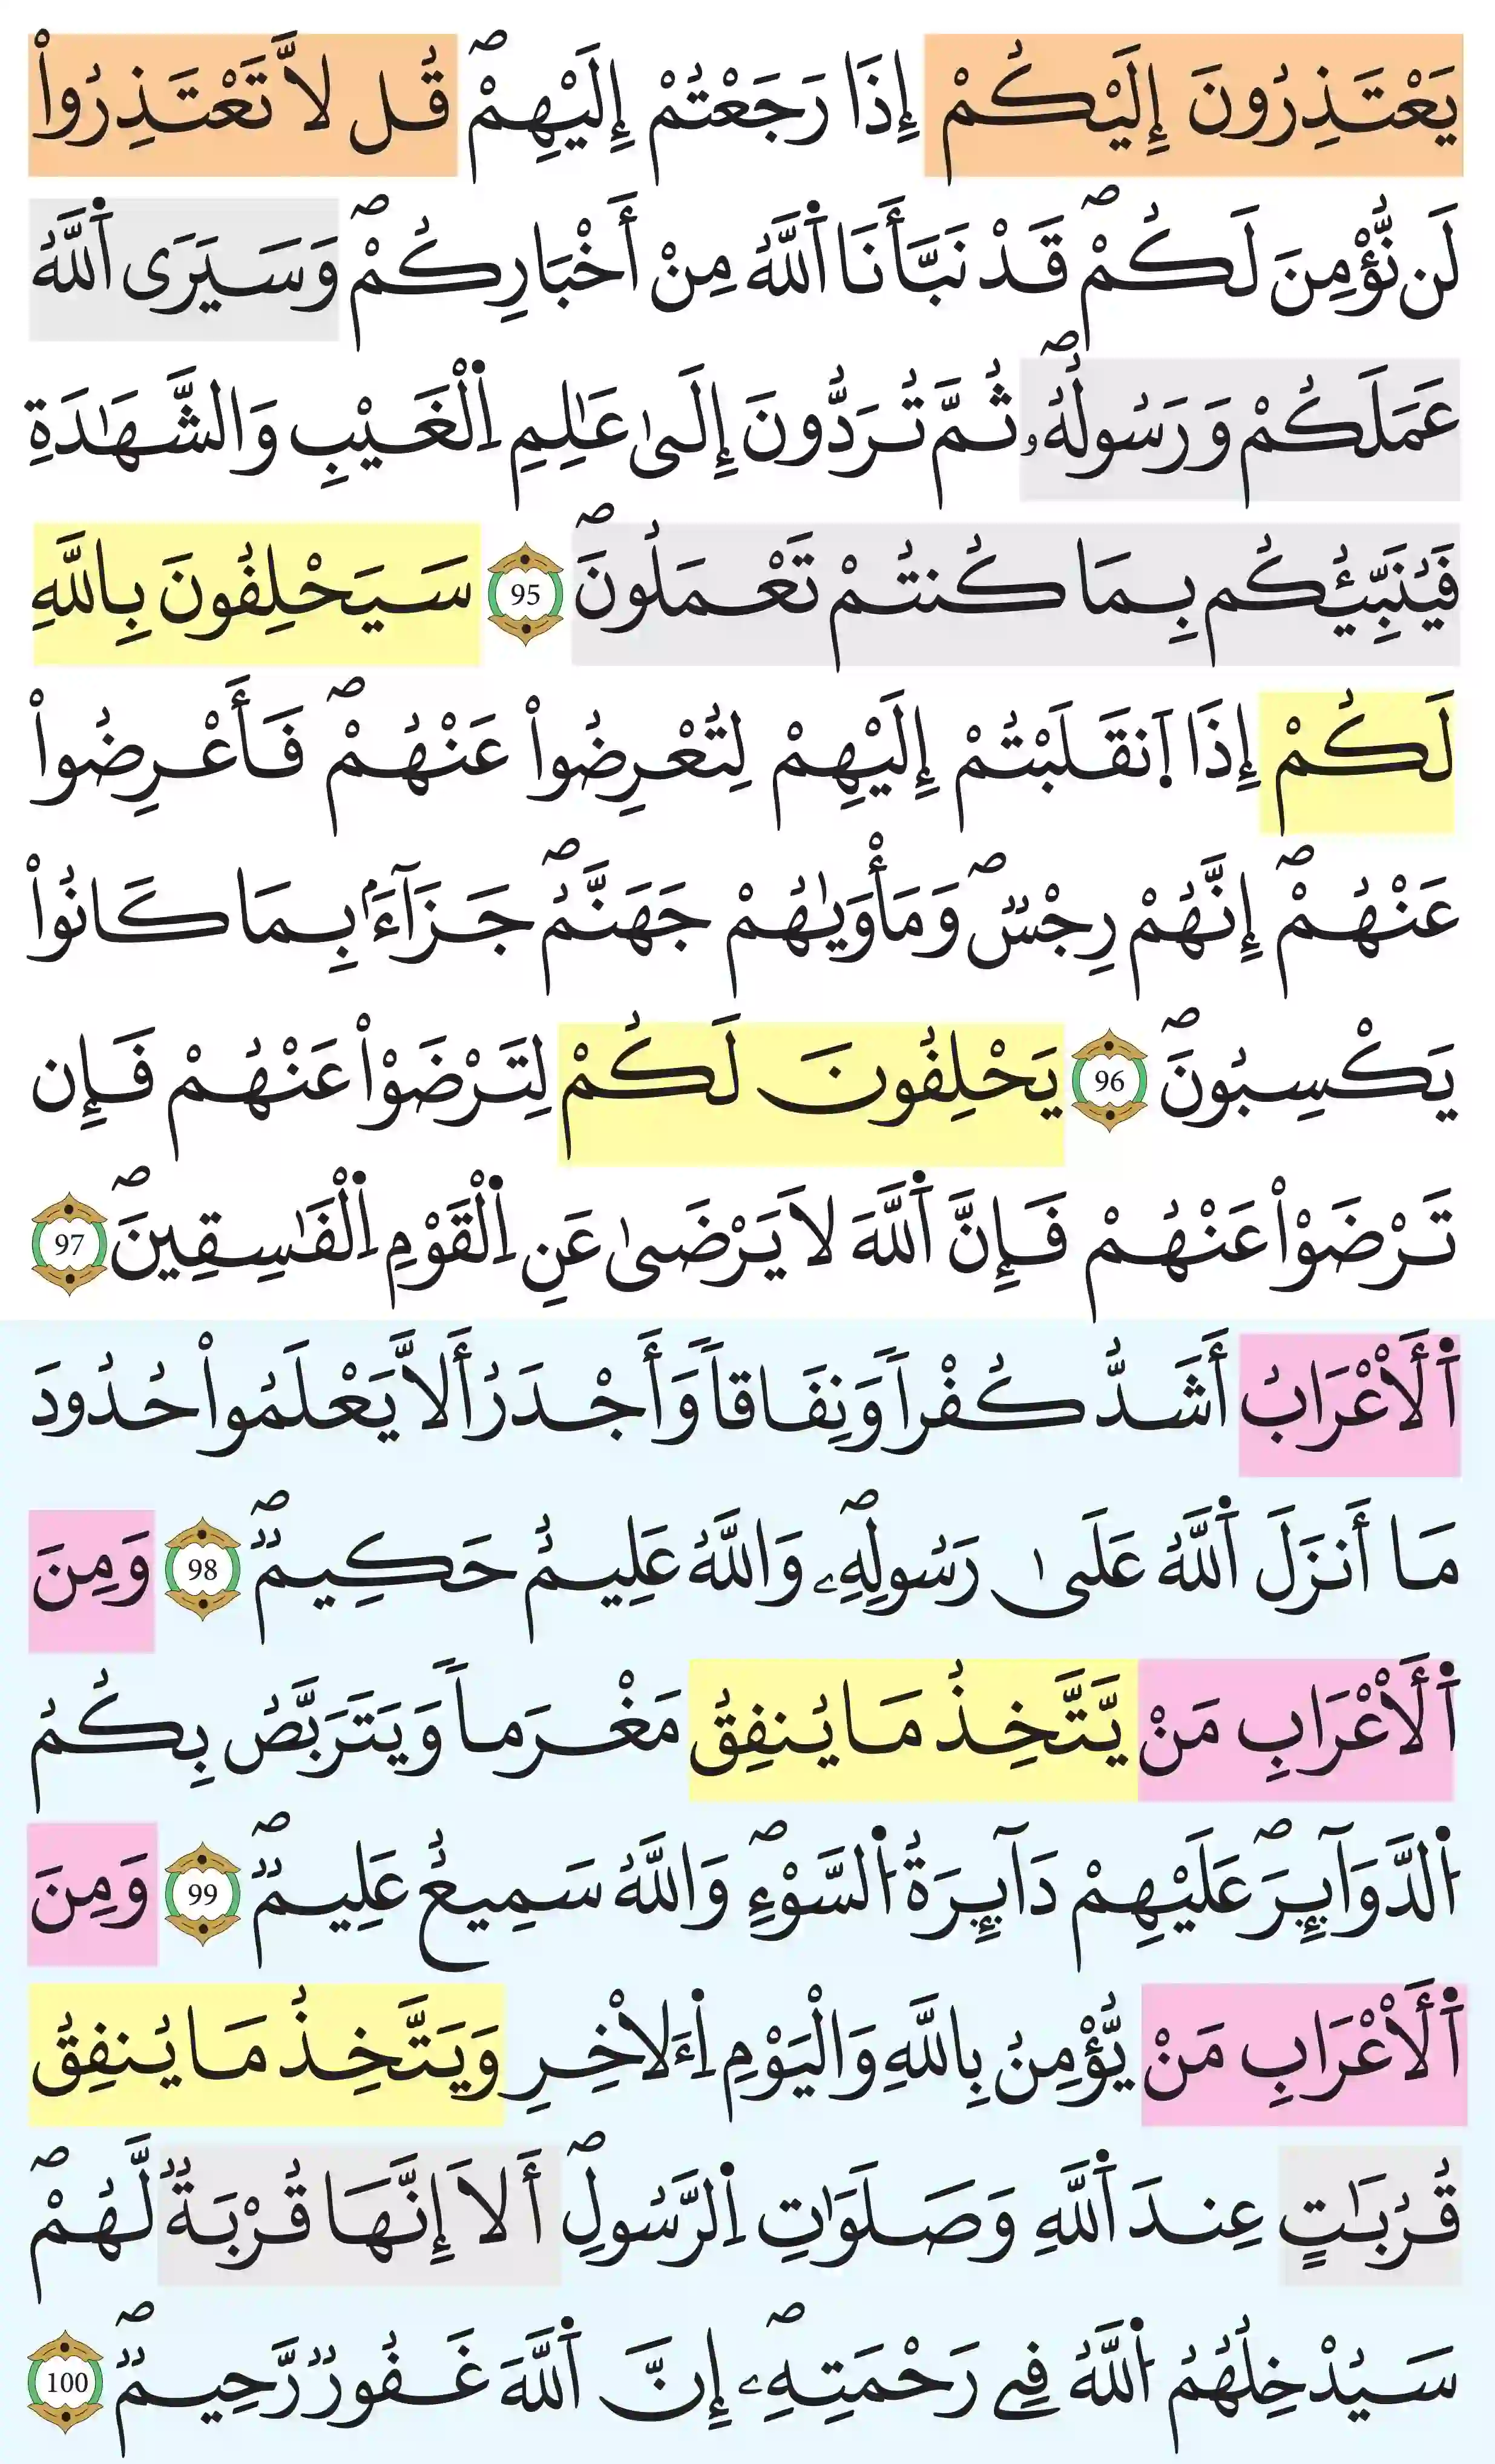 يَعْتَذِرُونَ إِلَيْكُمْ إِذَا رَجَعْتُمْ إِلَيْهِمْۖ قُل لَّا تَعْتَذِرُواْ
لَن نُّؤْمِنَ لَكُمْۖ قَدْ نَبَّأَنَا اَ۬للَّهُ مِنْ أَخْبَارِكُمْۖ وَسَيَرَي اَ۬للَّهُ
عَمَلَكُمْ وَرَسُولُهُۥۖ ثُمَّ تُرَدُّونَ إِلَىٰ عَٰلِمِ اِ۬لْغَيْبِ وَالشَّهَٰدَةِ
فَيُنَبِّئُكُم بِمَا كُنتُمْ تَعْمَلُونَۖ 95 سَيَحْلِفُونَ بِاللَّهِ
لَكُمْ إِذَا اَ۪نقَلَبْتُمْ إِلَيْهِمْ لِتُعْرِضُواْ عَنْهُمْۖ فَأَعْرِضُواْ
عَنْهُمْۖ إِنَّهُمْ رِجْسٞۖ وَمَأْوَىٰهُمْ جَهَنَّمُۖ جَزَآءَۢ بِمَا كَانُواْ
يَكْسِبُونَۖ 96 يَحْلِفُونَ لَكُمْ لِتَرْضَوْاْ عَنْهُمْ فَإِن
تَرْضَوْاْ عَنْهُمْ فَإِنَّ اَ۬للَّهَ لَا يَرْضَىٰ عَنِ اِ۬لْقَوْمِ اِ۬لْفَٰسِقِينَۖ 97
اَ۬لْأَعْرَابُ أَشَدُّ كُفْراٗ وَنِفَاقاٗ وَأَجْدَرُ أَلَّا يَعْلَمُواْ حُدُودَ
مَا أَنزَلَ اَ۬للَّهُ عَلَىٰ رَسُولِهِۦۖ وَاللَّهُ عَلِيمٌ حَكِيمٞۖ 98 وَمِنَ
اَ۬لْأَعْرَابِ مَنْ يَّتَّخِذُ مَا يُنفِقُ مَغْرَماٗ وَيَتَرَبَّصُ بِكُمُ
اُ۬لدَّوَآئِرَۖ عَلَيْهِمْ دَآئِرَةُ اُ۬لسَّوْءِۖ وَاللَّهُ سَمِيعٌ عَلِيمٞۖ 99 وَمِنَ
اَ۬لْأَعْرَابِ مَنْ يُّؤْمِنُ بِاللَّهِ وَالْيَوْمِ اِ۬لْأٓخِرِ وَيَتَّخِذُ مَا يُنفِقُ
قُرُبَٰتٍ عِندَ اَ۬للَّهِ وَصَلَوَٰتِ اِ۬لرَّسُولِۖ أَلَا إِنَّهَا قُرْبَةٞ لَّهُمْۖ
سَيُدْخِلُهُمُ اُ۬للَّهُ فِي رَحْمَتِهِۦۖ إِنَّ اَ۬للَّهَ غَفُورٞ رَّحِيمٞۖ 100